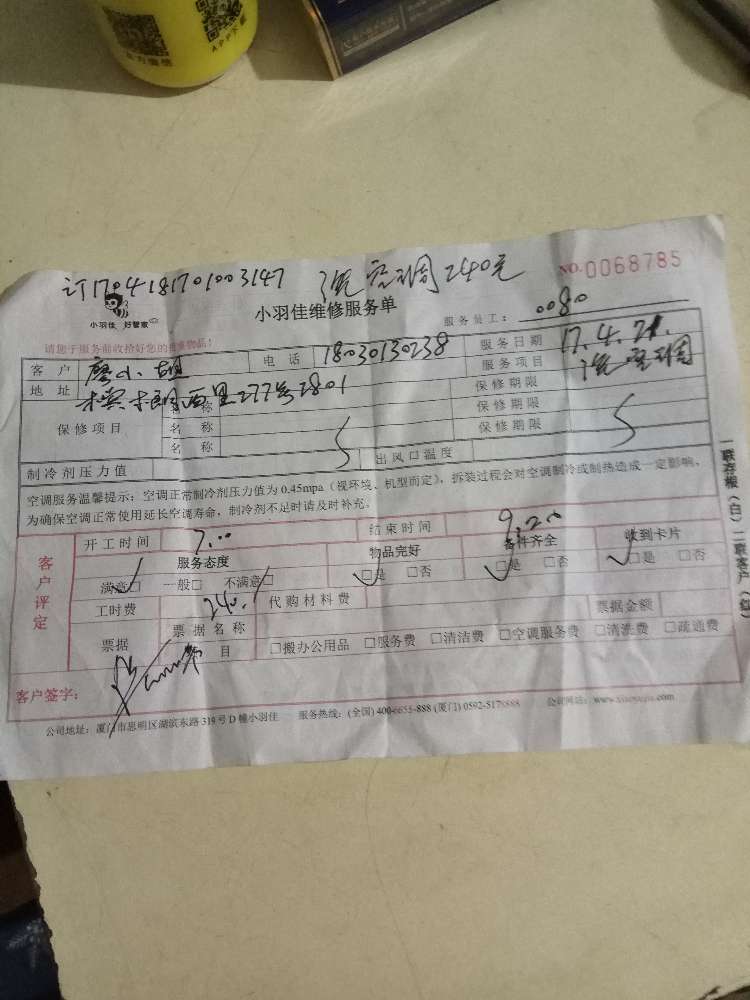 官方微信
APP下载
订170418170100 3147 洗空调240元
NO.0068785
小羽佳 好管家
小羽佳维修服务单
服务员工： 0080
请您于服务前收拾好您的贵重物品！
客户 廖小姐 电话 18030130238 服务日期 17.4.21.
地址 西里277号2801 服务项目 洗空调
保修项目 名称 保修期限
名称 保修期限
名称 保修期限
制冷剂压力值 出风口温度
空调服务温馨提示：空调正常制冷剂压力值为 0.45mpa（视环境、机型而定），拆装过程会对空调制冷或制热造成一定影响，
为确保空调正常使用延长空调寿命，制冷剂不足时请及时补充。
客户评定
开工时间 7.00 结束时间 9.20
服务态度 物品完好 备件齐全 收到卡片
满意□ 一般□ 不满意□ □是 □否 □是 □否 □是 □否
工时费 240. 代购材料费 票据金额
票据 票据名称
项目 □搬办公用品 □服务费 □清洁费 □空调服务费 □清洗费 □疏通费
客户签字：
公司地址：厦门市思明区湖滨东路 319号D幢小羽佳 服务热线：(全国) 400-6655-888 (厦门) 0592-5178888 公司网站：www.xiaoyujia.com
一联存根（白）二联客户（红）